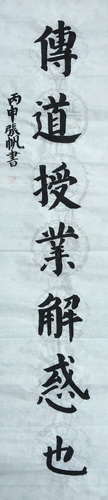 傳道授業解惑也
丙申張帆書